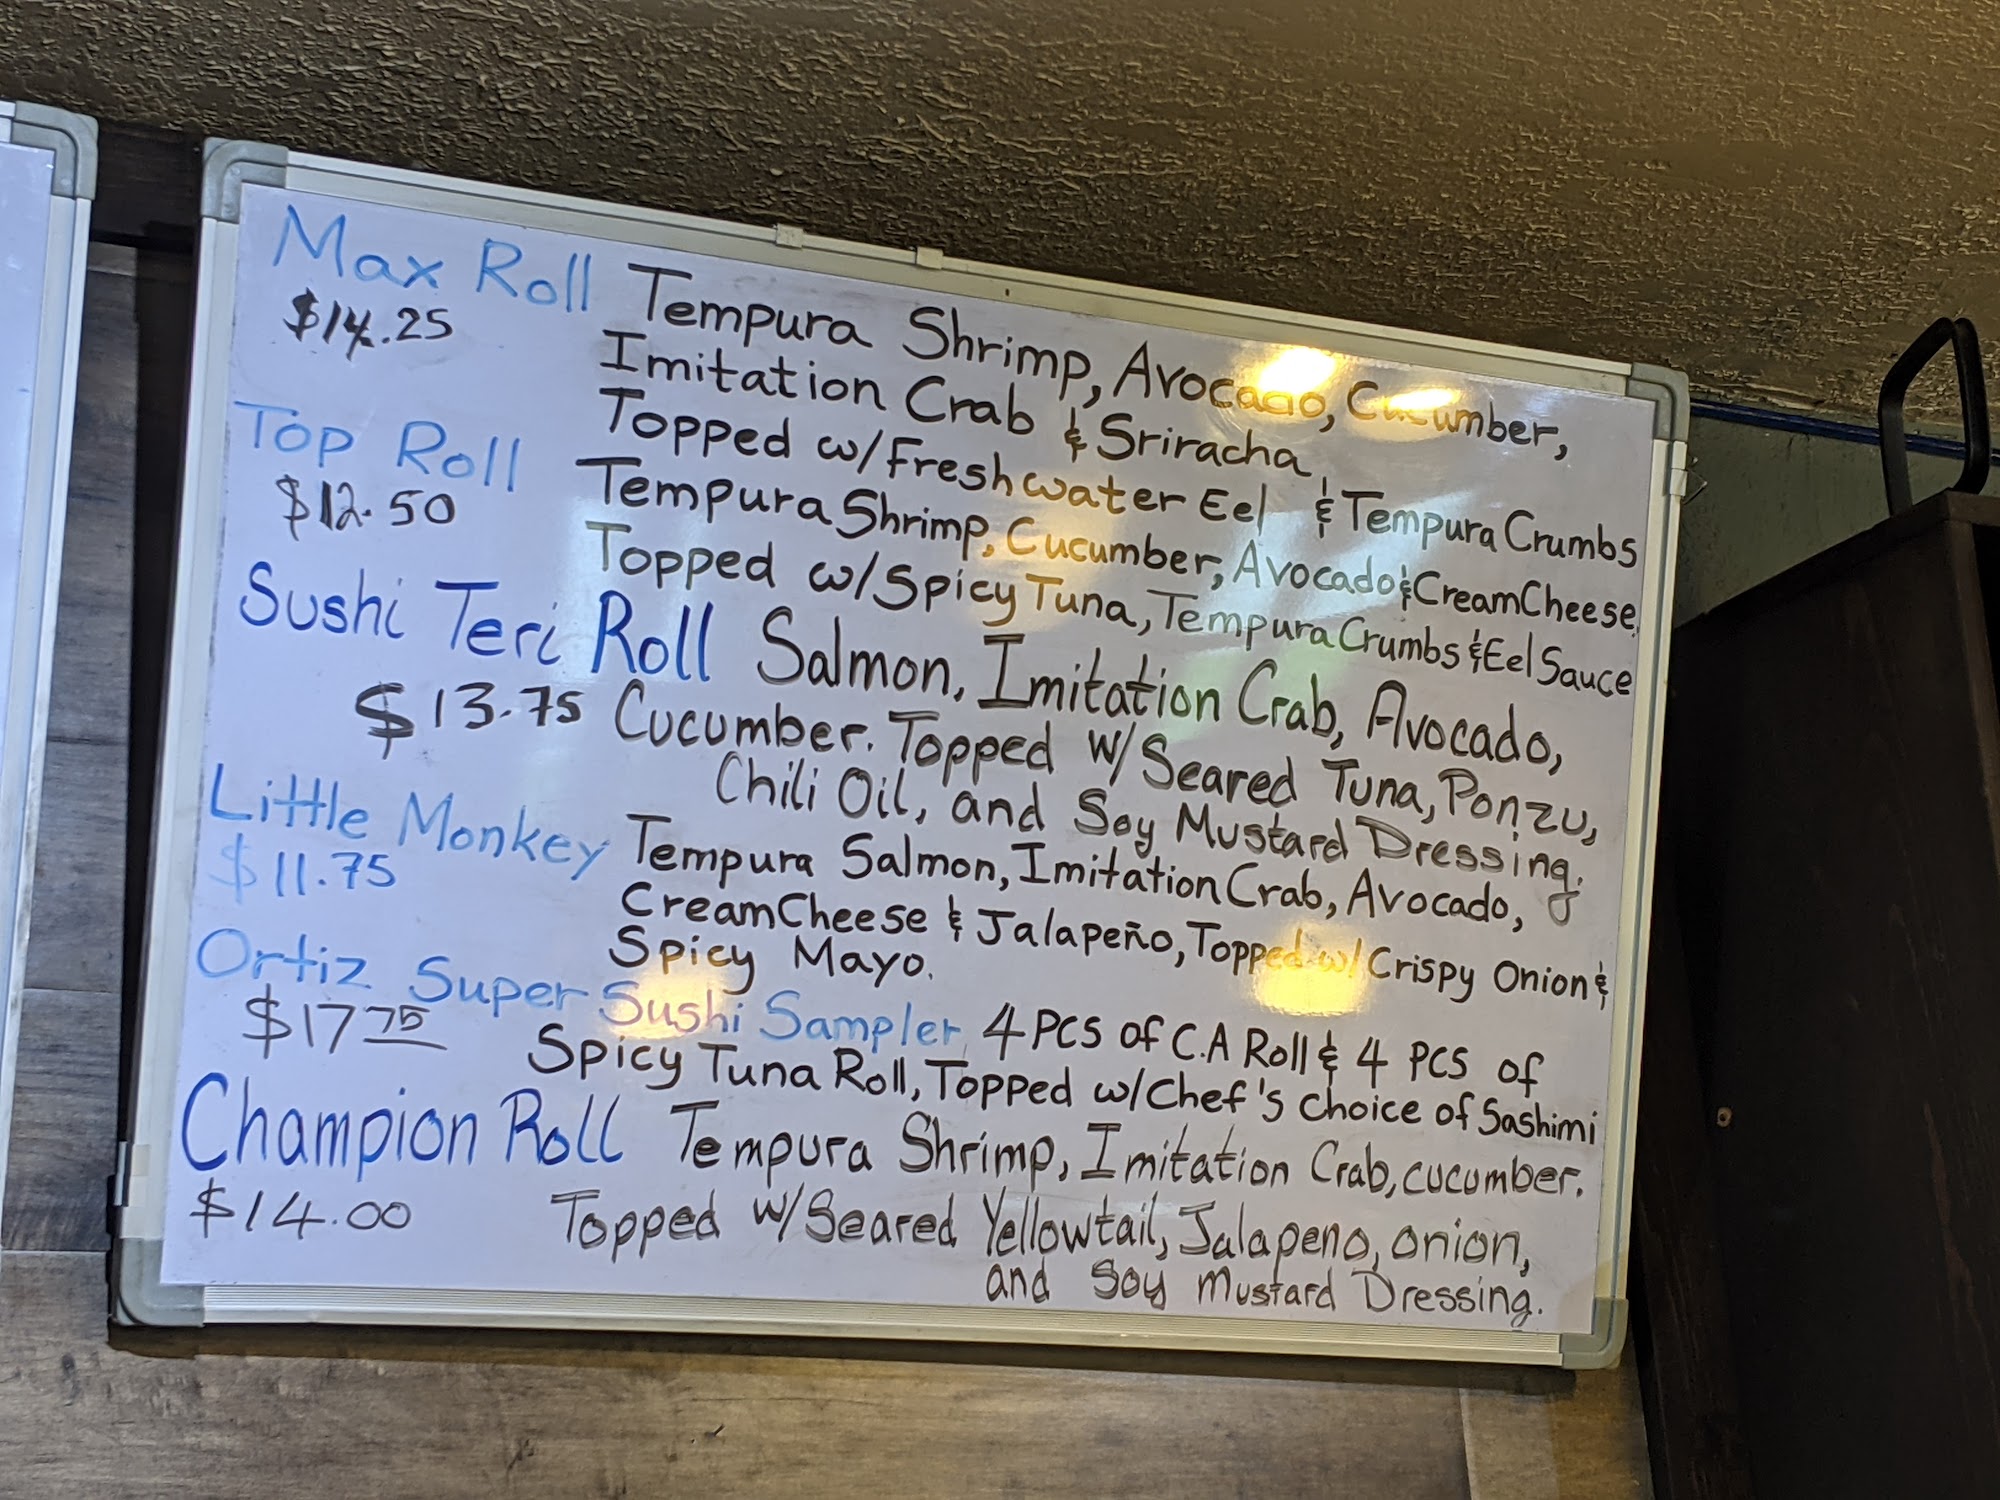 Max Roll Tempura Shrimp, Avocado, Cucumber,
$14.25 Imitation Crab & Sriracha,
Topped w/Freshwater Eel & Tempura Crumbs
Top Roll Tempura Shrimp, Cucumber, Avocado & Cream Cheese,
$12.50 Topped w/Spicy Tuna, Tempura Crumbs & Eel Sauce
Sushi Teri Roll Salmon, Imitation Crab, Avocado,
$13.75 Cucumber. Topped w/ Seared Tuna, Ponzu,
Chili Oil, and Soy Mustard Dressing.
Little Monkey Tempura Salmon, Imitation Crab, Avocado,
$11.75 Cream Cheese & Jalapeño, Topped w/ Crispy Onion &
Spicy Mayo.
Ortiz Super Sushi Sampler 4 PCS of C.A Roll & 4 PCS of
$17.75 Spicy Tuna Roll, Topped w/Chef's choice of Sashimi
Champion Roll Tempura Shrimp, Imitation Crab, cucumber.
$14.00 Topped w/Seared Yellowtail, Jalapeno, onion,
and Soy Mustard Dressing.